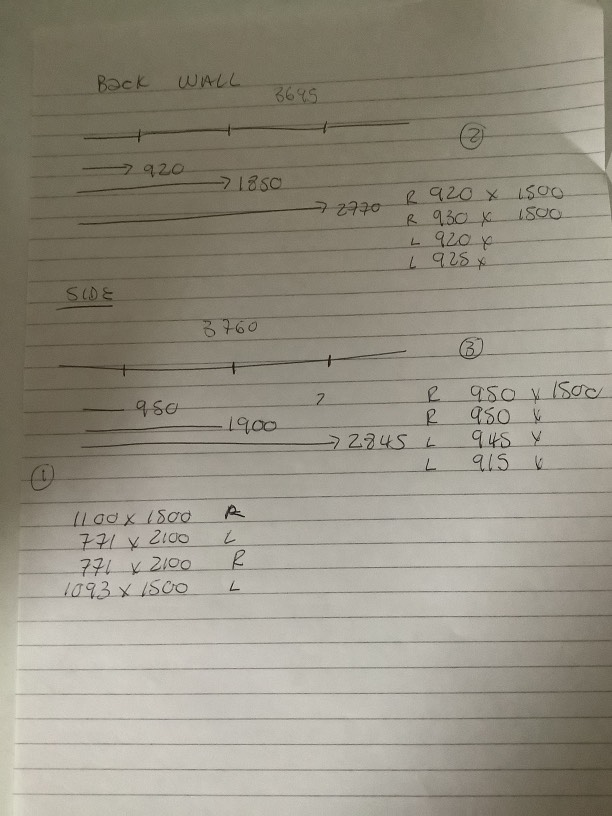 Back WALL
3695
②
→ 920
→ 1850
→ 2770
R 920 x 1500
R 930 x 1500
L 920 x
L 925 x
SIDE
3760
③
950
1900
→ 2845
R 950 x 1500
R 950 x
L 945 x
L 915 x
①
1100 x 1500 R
771 x 2100 L
771 x 2100 R
1093 x 1500 L